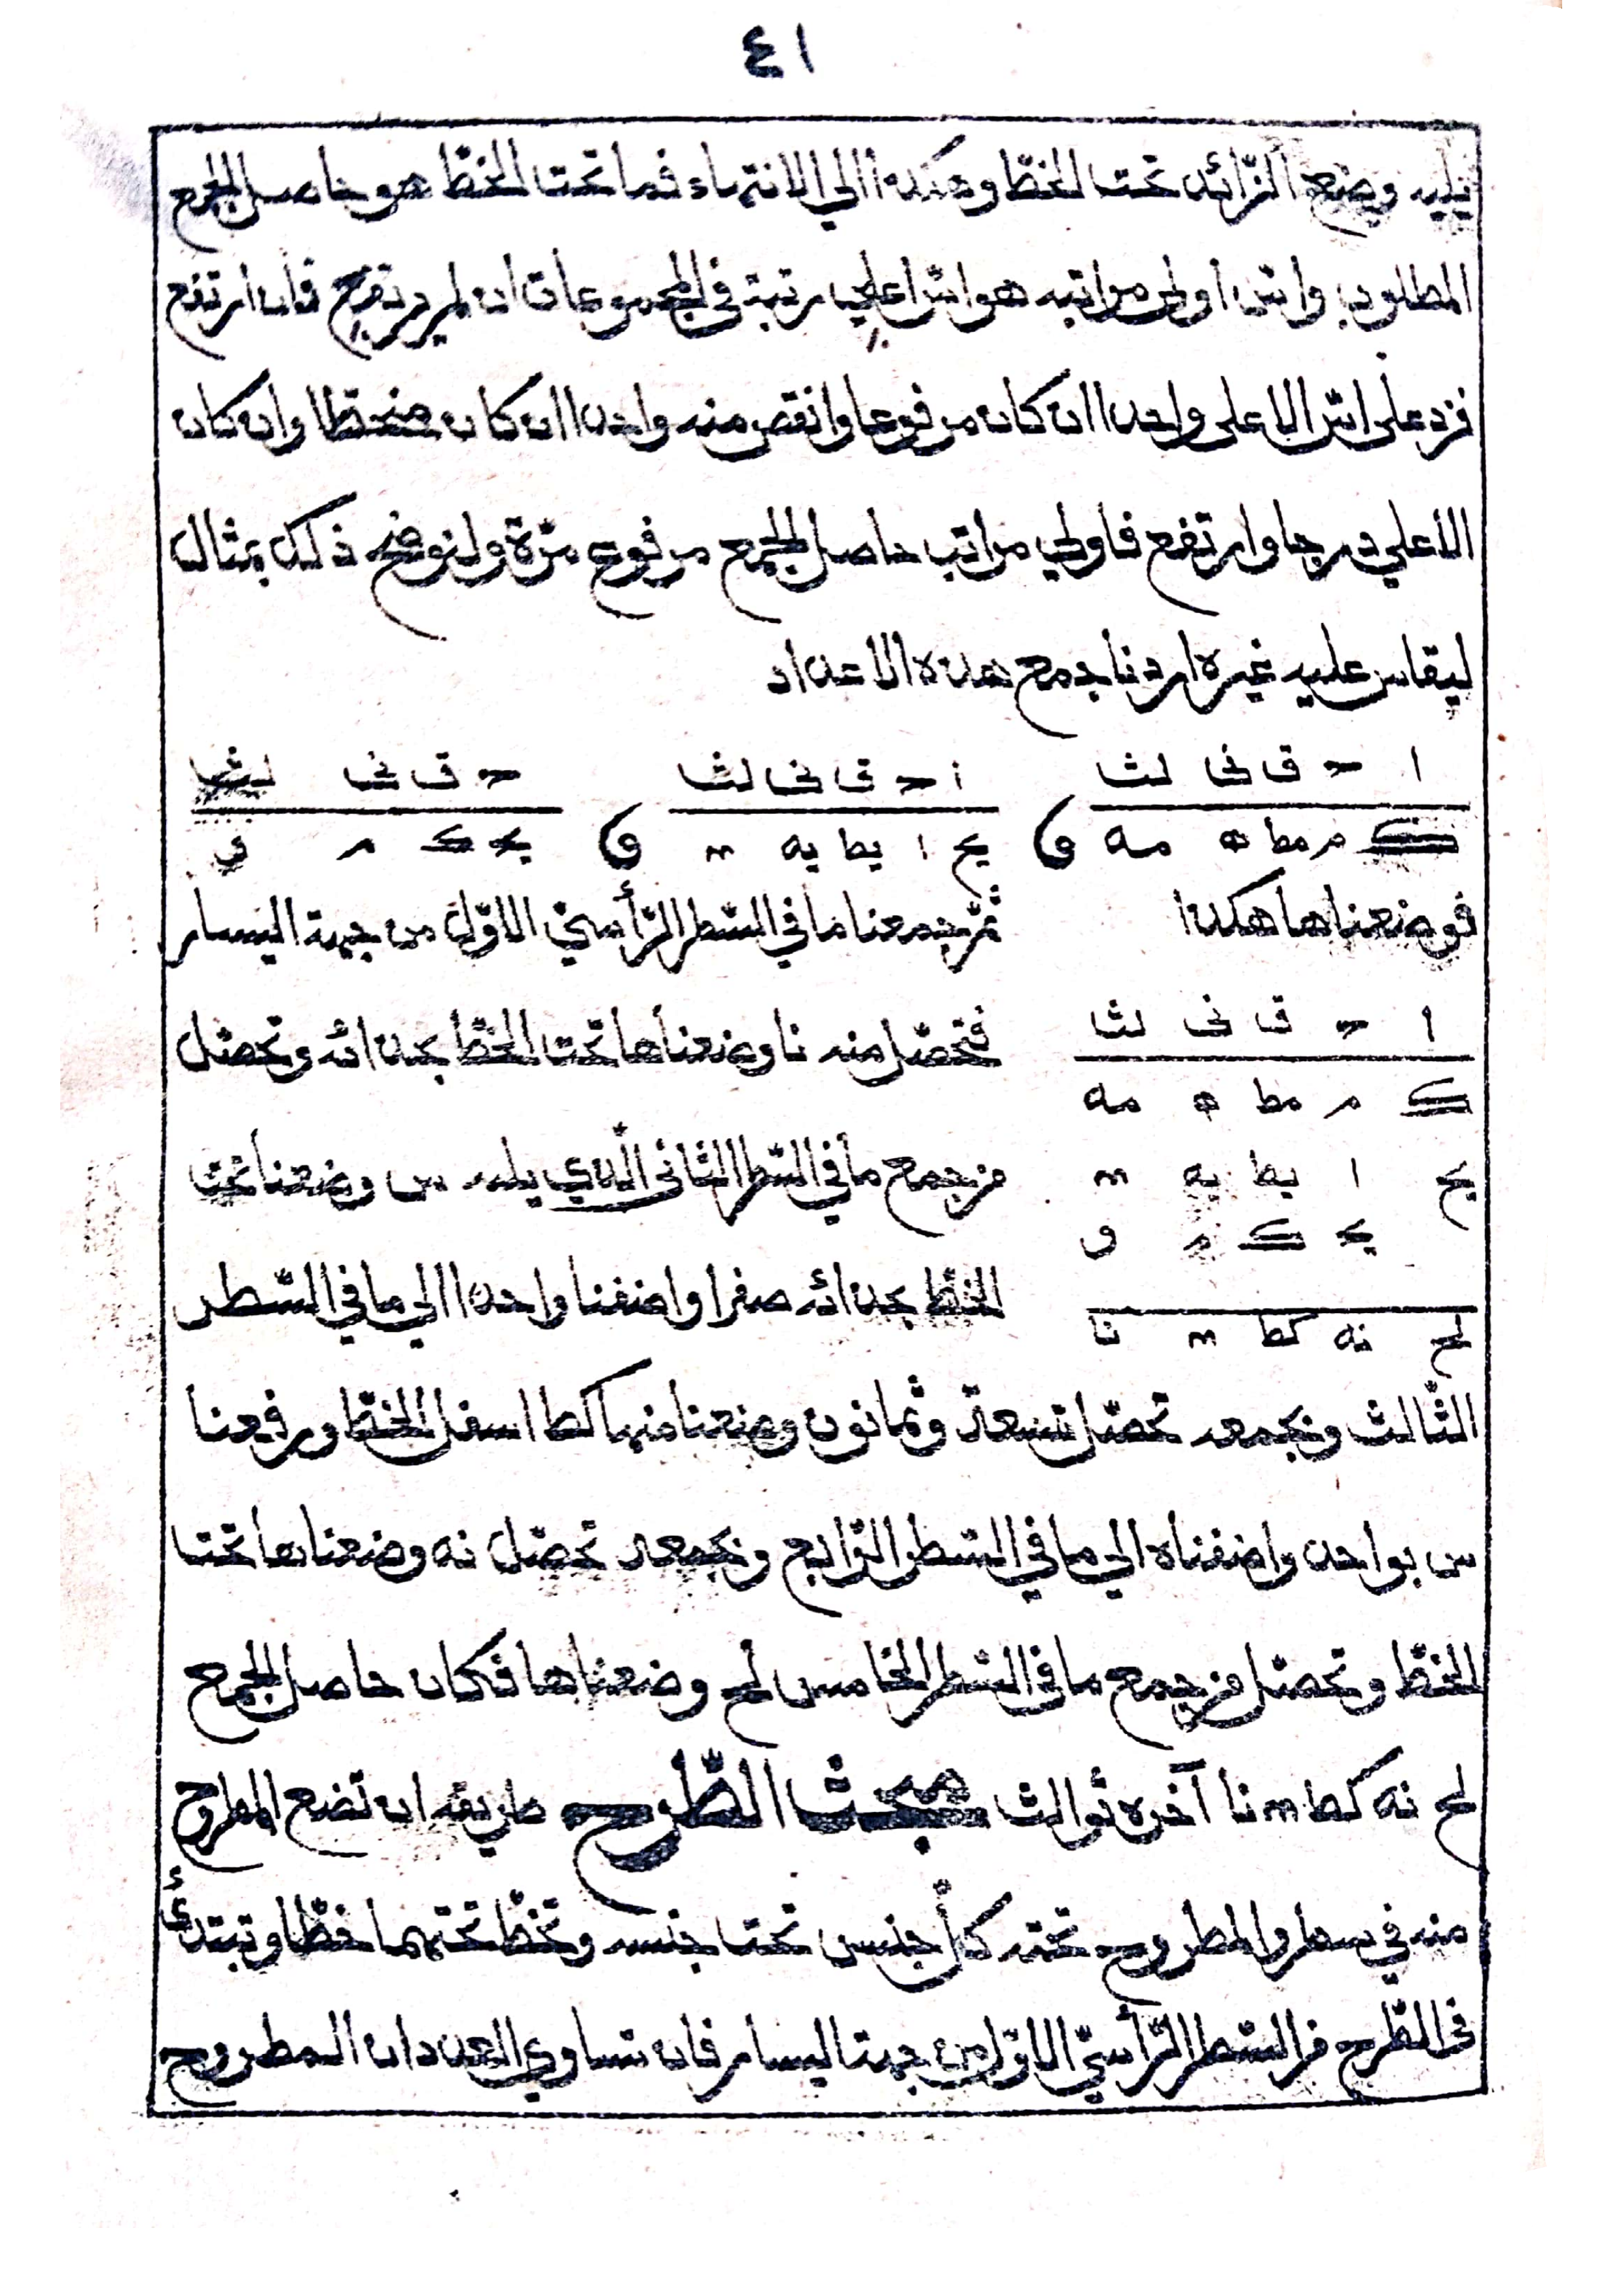 ٤١
يليه وضع الزّائد تحت الخطّ وهكذا الي الانتهاء فما تحت الخطّ هو حاصل الجمع
المطلوب واسّ اولى مراتبه هو اسّ اعلي مرتبة في المجموعات ان لم يرتفع فان ارتفع
فزد على اسّ الاعلى واحدا ان كان مرفوعا وانقص منه واحدا ان كان منحطا وان كان
الاعلي درجا وارتفع فاولي مراتب حاصل الجمع مرفوع مرّة ولنوضح ذلك بمثال
ليقاس عليه غيره اردنا جمع هذه الاعداد
ا حـ ق نى لث ا حـ ق نى لث حـ ق نى لث
ك م مط ه مه و يح ا يط يه و يح ك م و
فوضعناها هكذا ثمّ جمعنا ما في السّطر الرّأسيّ الاوّل من جهة اليسار
ا حـ ق نى لث
فتحصّل منه نا وضعناها تحت الخطّ بحذائه وتحصّل
ك م مط ه مه
من جمع ما في السّطر الثّانى الّذي يليه س وضعنا تحت
يح ا يط يه
الخطّ بحذائه صفرا واضفنا واحدا الي ما في السّطر
لح نه كط نا
الثّالث وبجمعه تحصّل تسعة وثمانون وضعنا منها كط اسفل الخطّ ورفعنا
س بواحد واضفناه الي ما في السّطر الرّابع وبجمعه تحصّل نه وضعناها تحت
الخطّ وتحصّل من جمع ما في السّطر الخامس لح وضعناها فكان حاصل الجمع
لح نه كط نا آخره ثوالث مبحث الطّرح طريقه ان تضع المطروح
منه في سطر والمطروح تحته كلّ جنس تحت جنسه وتخطّ تحتهما خطّا وتبتدئ
في الطّرح من السّطر الرّأسيّ الاوّل من جهة اليسار فان تساوي العددان المطروح